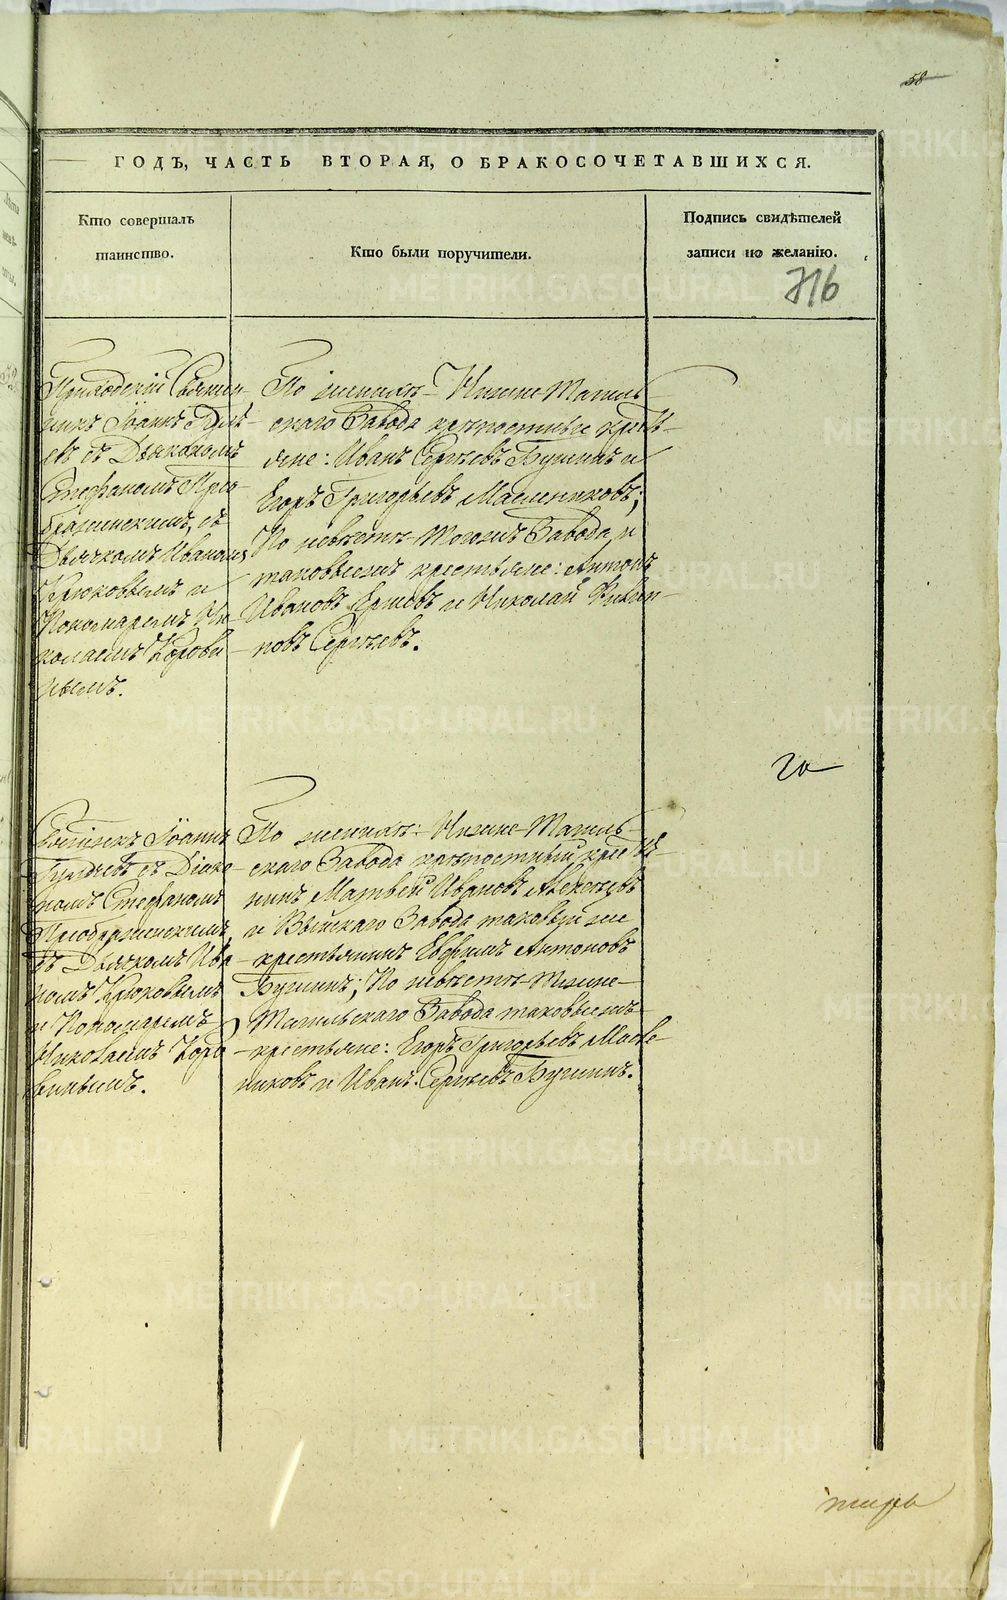 58
ГОДЪ, ЧАСТЬ ВТОРАЯ, О БРАКОСОЧЕТАВШИХСЯ.
Кто совершалъ
таинство.
Кто были поручители.
Подпись свидѣтелей
записи по желанію.
716
Приходскій Священ
никъ Іоаннъ
евъ съ Діякономъ
Стефаномъ Прео
браженскимъ, съ
Дьячкомъ Иваномъ
Крюковымъ и
Пономаремъ Ни
колаемъ Корови
нымъ.
По женихѣ: Нижне Тагиль
скаго Завода крѣпостные кресть
яне: Иванъ Сергѣевъ Бушинъ и
Егоръ Григорьевъ Маслениковъ;
По невѣстѣ тогожъ Завода и
таковыежъ крестьяне: Антонъ
Ивановъ Ершовъ и Николай Филип
повъ Сергѣевъ.
го
Іоаннъ
съ Діяко
номъ Стефаномъ
Преображенскимъ,
съ Дьячкомъ Ива
номъ Крюковымъ
и Пономаремъ
Николаемъ Коро
винымъ.
По женихѣ: Нижне Тагиль
скаго Завода крѣпостный кресть
нинъ Матвей Ивановъ Алексѣевъ
и Выйскаго Завода таковый же
крестьянинъ Евфимъ Антоновъ
Бушинъ; По невѣстѣ Нижне
Тагильскаго Завода таковыежъ
крестьяне: Егоръ Григорьевъ Масле
никовъ и Иванъ Сергѣевъ Бушинъ.
METRIKI.GASO-URAL.RU